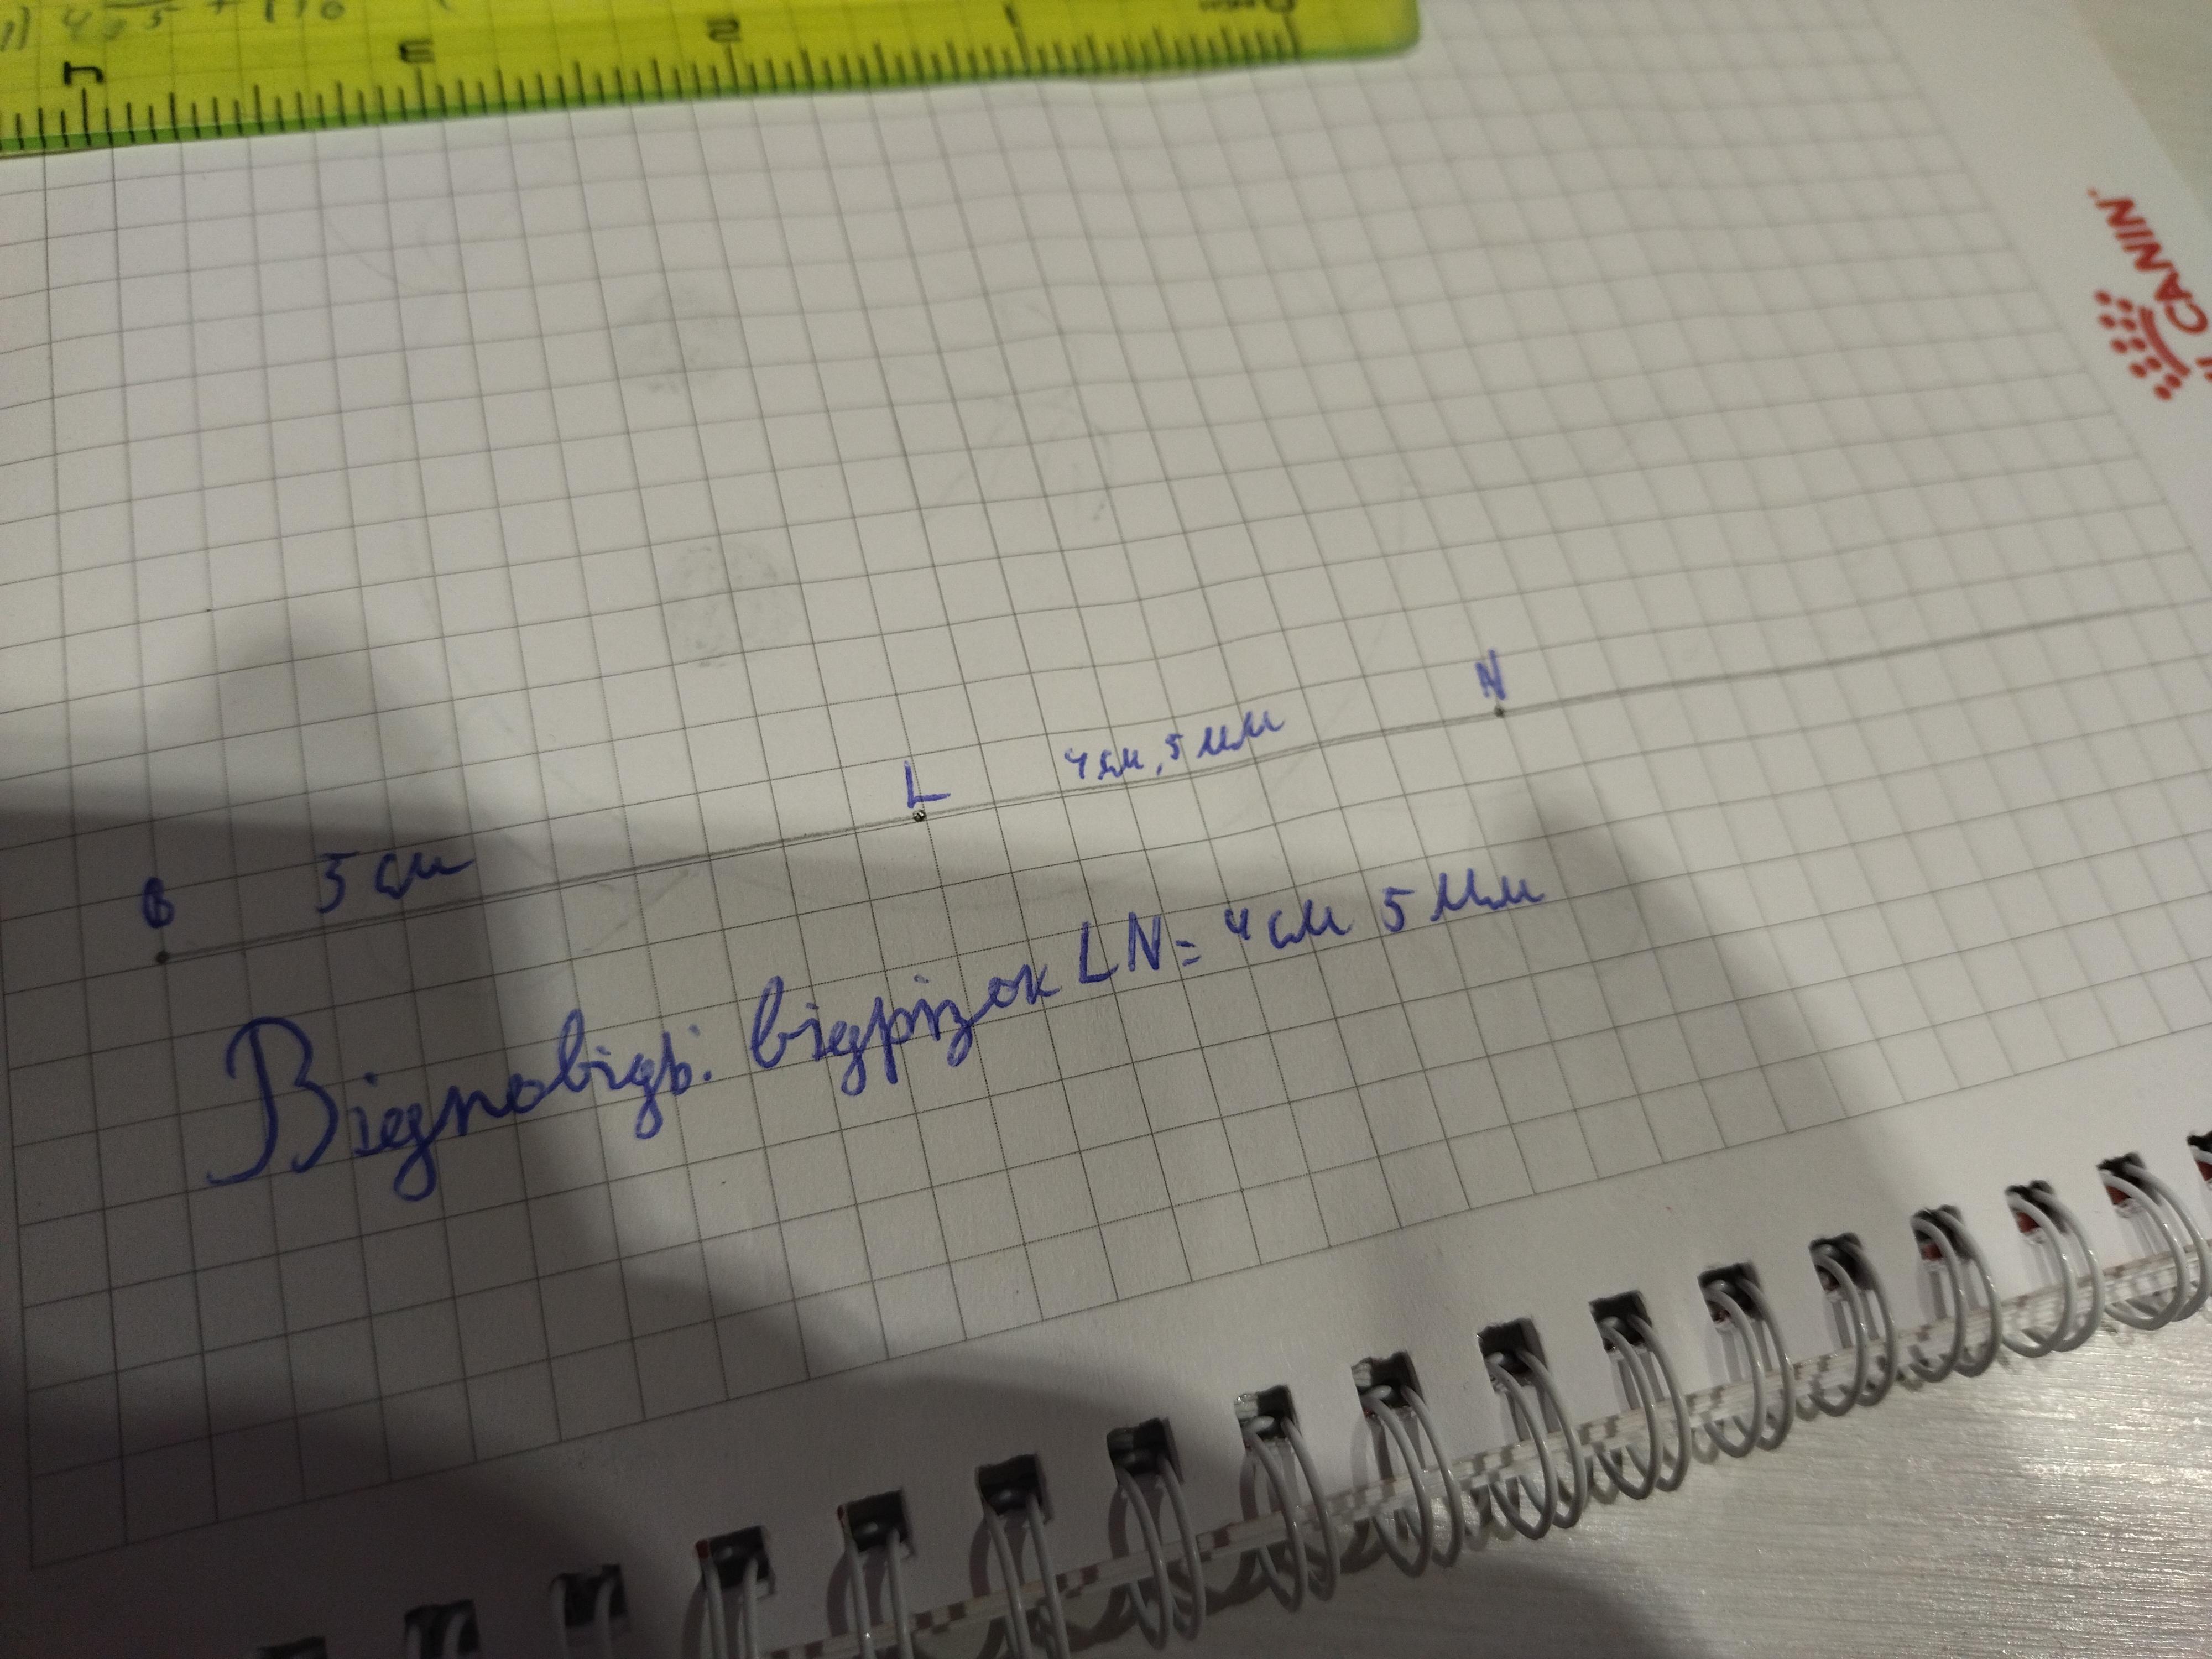 4 3 2 1 0
CANIN
N
4 см, 5 мм
L
5 см
В
Відповідь: відрізок LN = 4 см 5 мм